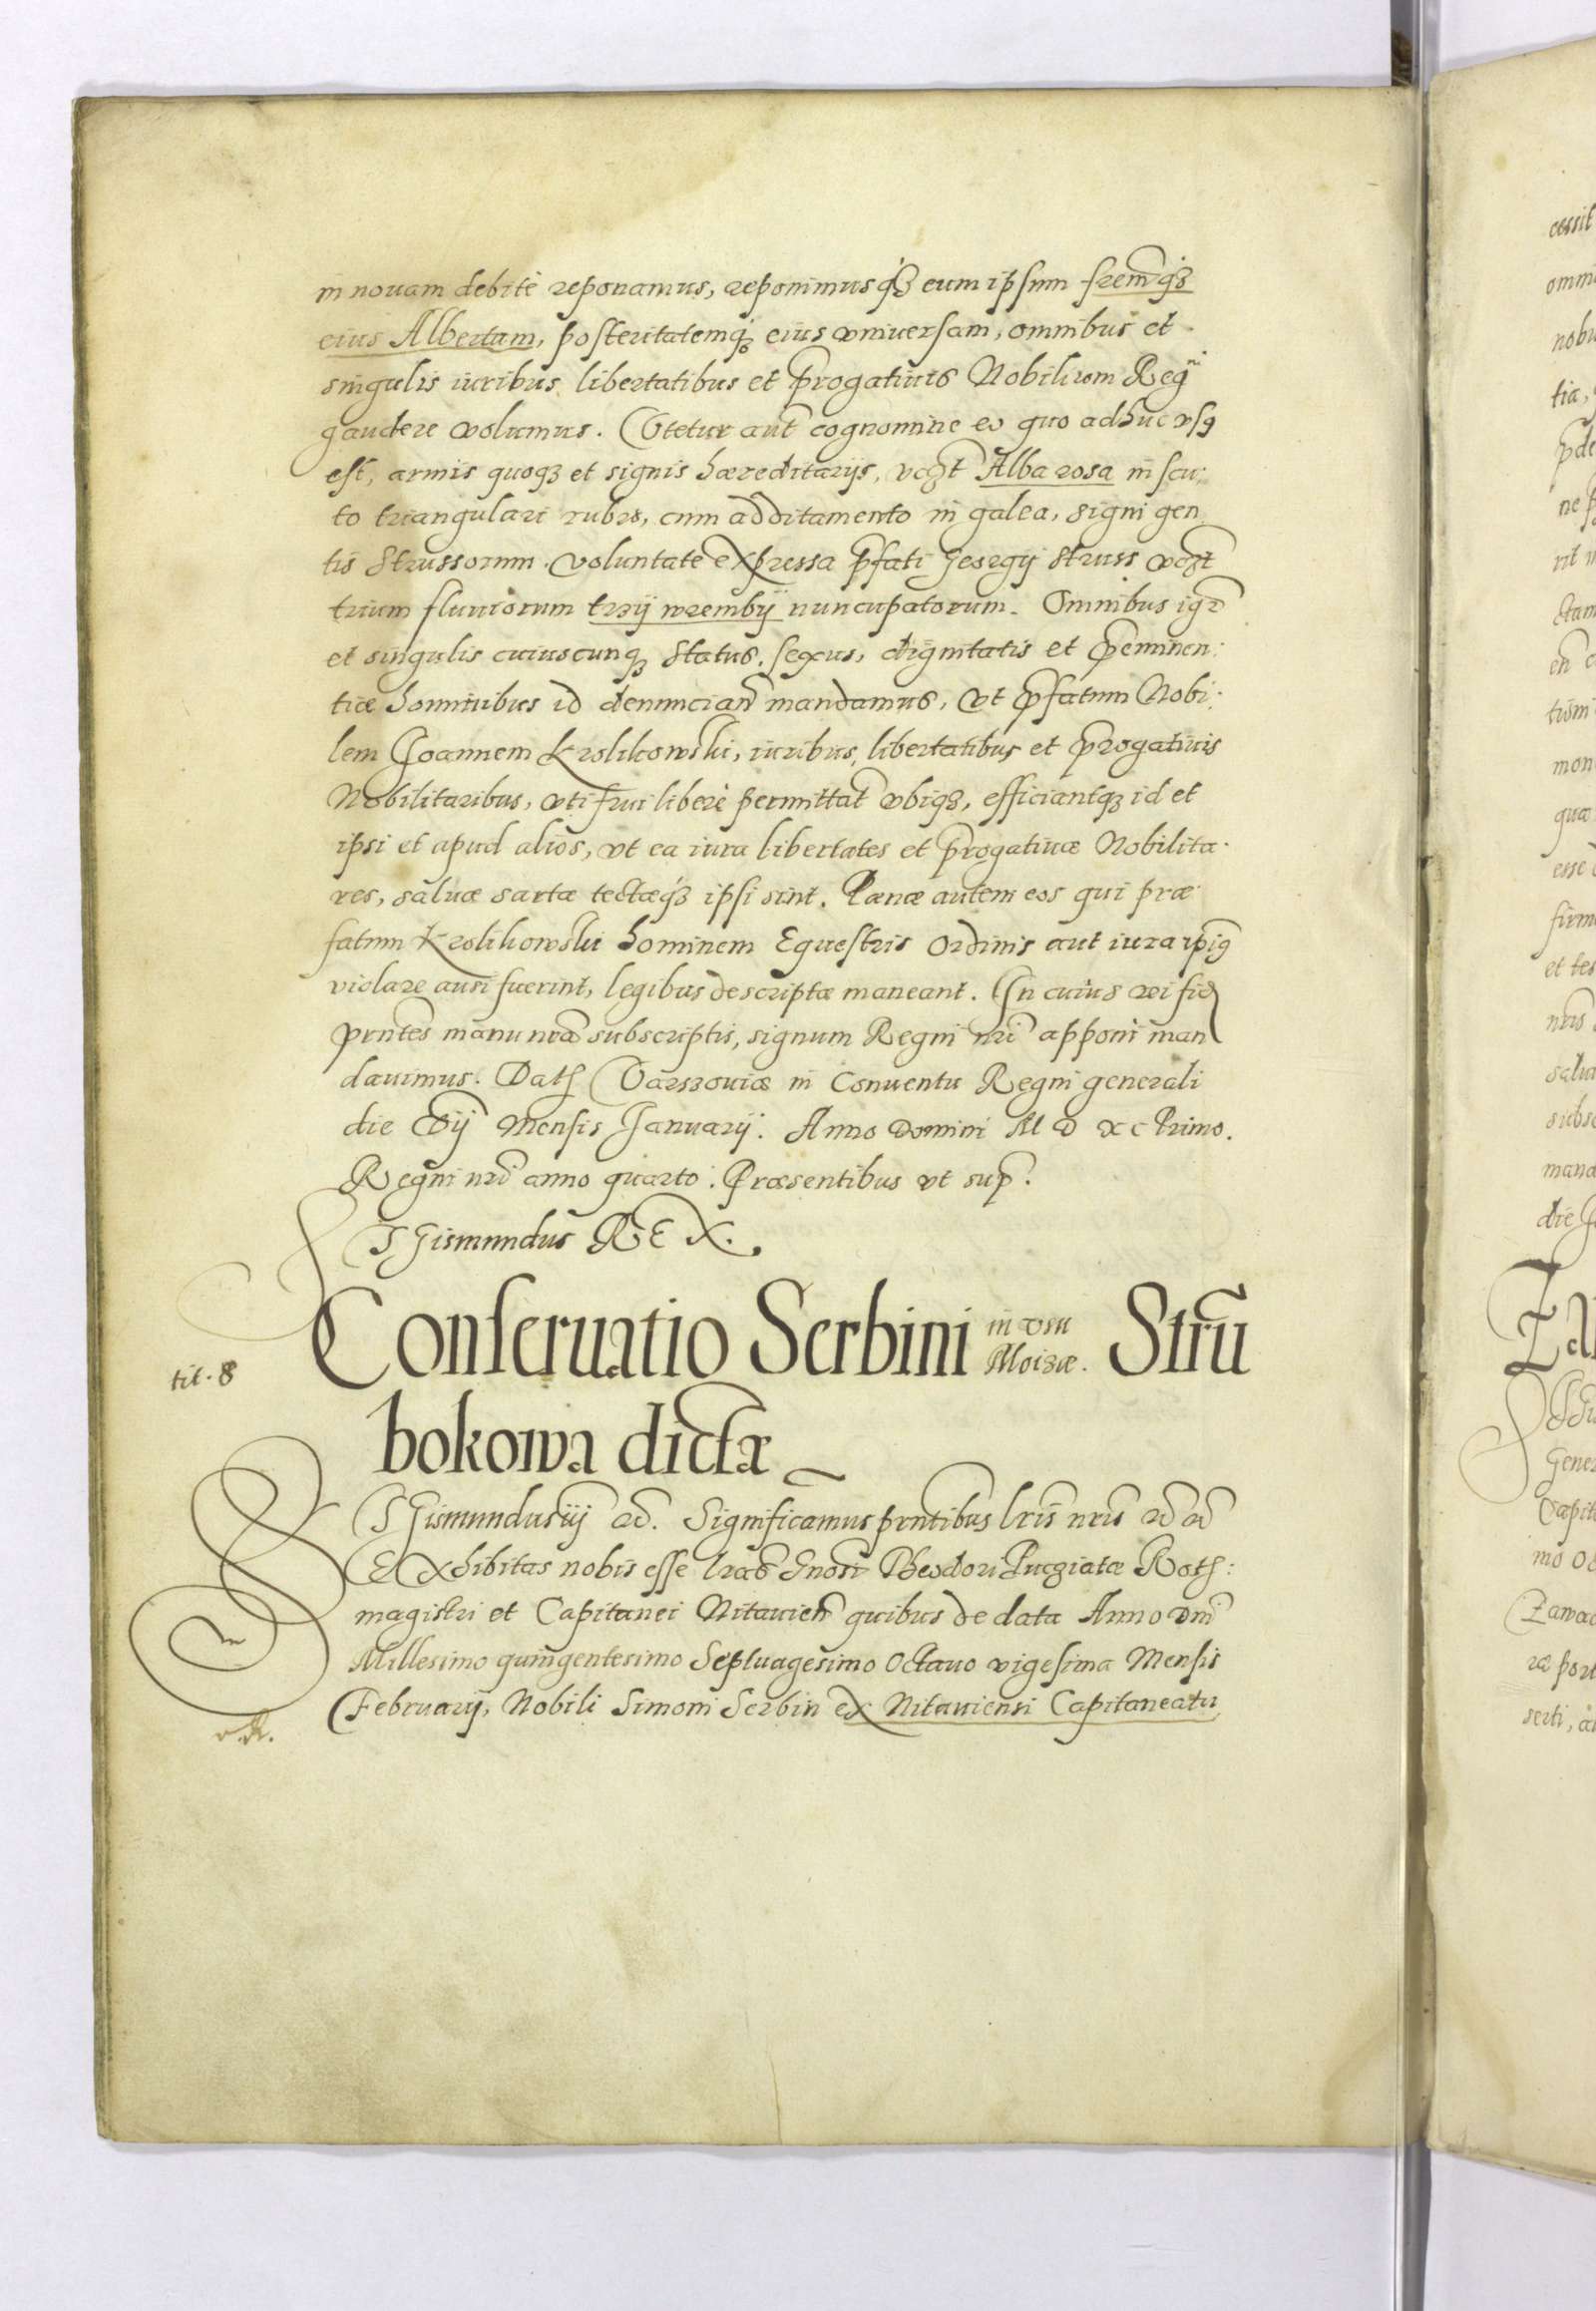 in nouam debitè reponamus, reponimusq́ꝫ eum ipsum frem̃q́ꝫ
eius Albertum, posteritatemq́ꝫ eius vniuersam, omnibus et
singulis iuribus libertatibus et p̃rogatiuis Nobilium Regⁿⁱ
gaudere volumus. Vtetur aut̃ cognomine eo quo adhuc vsꝰ
est, armis quoqꝫ et signis hæreditarijs, vcꝫt̃ Alba rosa in scu:
to triangulari rubro, cum additamento in galea, signi gen
tis Strussorum. voluntate expressa p̃fati Georgij Struss vcꝫt̃
trium fluuiorum trzy wremby nuncupatorum. Omnibus igr̃
et singulis cuiuscunqꝫ Status, sexus, dignitatis et p̃eminen:
tiæ hominibus id denuncian̄ mandamus, Vt p̃fatum Nobi:
lem Joannem Krolikowski, iuribus, libertatibus et p̃rogatiuis
Nobilitaribus, vti frui liberè permittat̃ vbiqꝫ, efficiantqꝫ id et
ipsi et apud alios, vt ea iura libertates et p̃rogatiuæ Nobilita:
res, saluæ sartæ tectæq́ꝫ ipsi sint. Pœnæ autem eos qui præ
fatum Krolikowski hominem Equestris Ordinis aut iura ip̃iꝰ
violare ausi fuerint, legibus descriptæ maneant. In cuius rei fid
prn̄tes manu nr̃a subscriptis, signum Regni nr̃i apponi man
dauimus. Datꝭ Varszouiæ in Conuentu Regni generali
die Vij Mensis Januarij. Anno Domini M D xc Primo.
Regni nr̃i anno quarto. Præsentibus vt sup̃.
SGismundus REX.
Conseruatio Serbini in vsu Moizæ. Strū
bokowa dictæ
tit. 8
SGismundus iij etc̃. Significamus prn̄tibus lr̃is nr̃is etc̃ etc̃
EXhibitas nobis esse lr̃as Gn̄osi Theodori Pucziatæ Rotꝭ:
magistri et Capitanei Nitauien̄ quibus de data Anno Dn̄i
Millesimo quingentesimo Septuagesimo Octauo vigesima Mensis
Februarij, Nobili Simoni Serbin ex Nitauiensi Capitaneatu